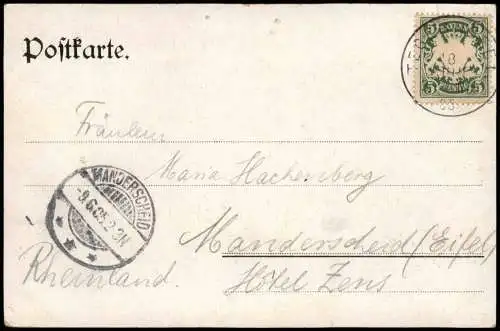 Postkarte.
5 BAYERN 5
5 PFENNIG 5
Fräulein
Maria Hachenberg
MANDERSCHEID
-9.6.05.2-3N
Manderscheid (Eifel)
Rheinland.
Hôtel Zens